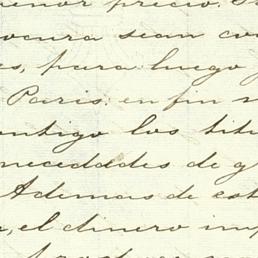 enor precio. S
ocura sean co
es, para luego
Paris: en fin n
ontigo los titu
necedades de g
Ademas de est
, el dinero imp